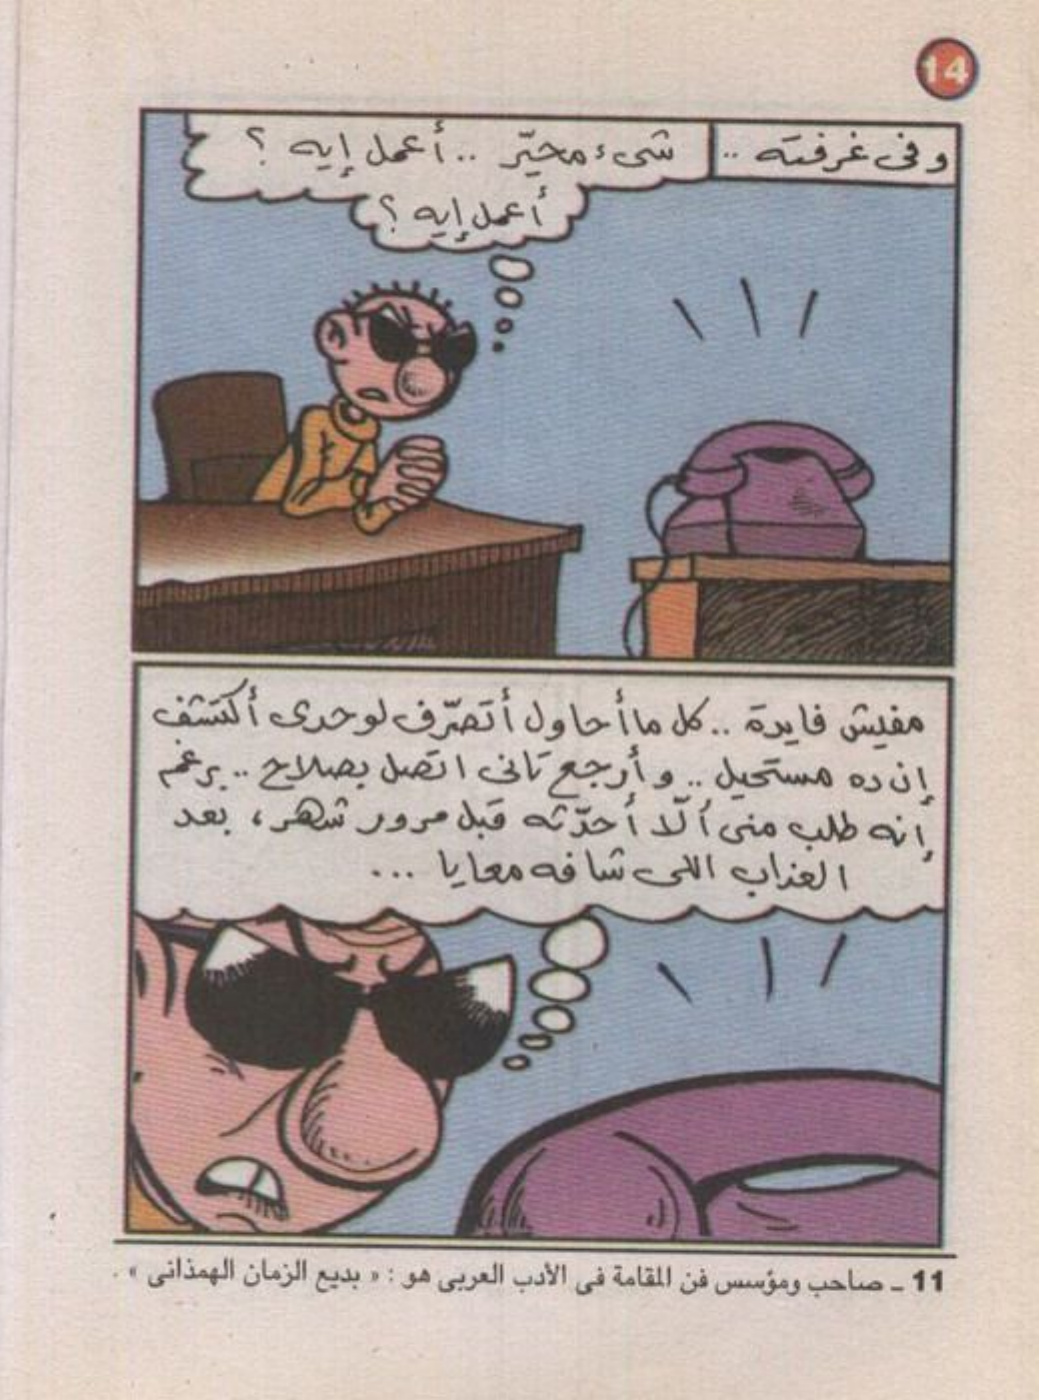 14
وفى غرفته ..
شىء محيّر .. أعمل إيه ؟
أعمل إيه ؟
مفيش فايدة .. كل ما أحاول أتصرّف لوحدى أكتشف
إن ده مستحيل .. وأرجع تانى اتصل بصلاح .. برغم
إنه طلب منى ألّا أحدّثه قبل مرور شهر، بعد
العذاب اللى شافه معايا ...
11 ـ صاحب ومؤسس فن المقامة فى الأدب العربى هو : « بديع الزمان الهمذانى » .